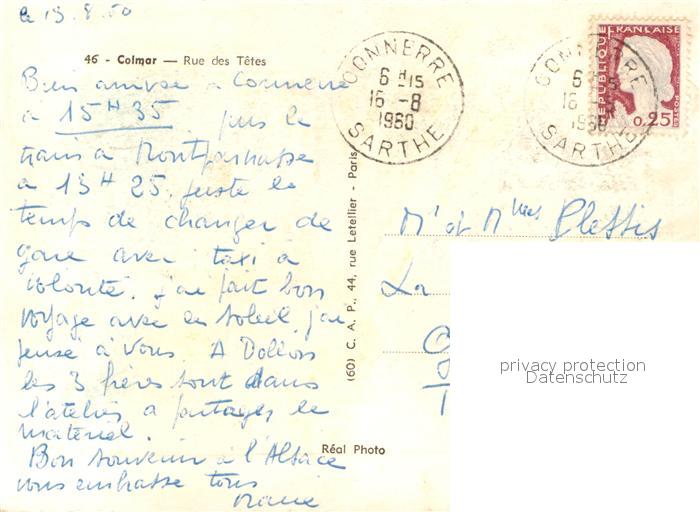 le 15.8.60
46 - Colmar — Rue des Têtes
Bien arrivée à Connerré
à 15H35. pris le
train à Montparnasse
à 13H25. juste le
temps de changer de
gare avec taxi à
volonté. j'ai fait bon
voyage avec le soleil j'ai
pensé à vous. A Dollon
les 3 frères sont dans
l'atelier à partager le
matériel.
Bon souvenir à l'Alsace
vous embrasse tous
CONNERRE
6 H 15
16 -8
1960
SARTHE
CONNERRE
6 H 15
16 -8
1960
SARTHE
REPUBLIQUE FRANÇAISE
POSTES
0,25
(60) C. A. P., 44, rue Letellier - Paris
Mr et Mmes Plessis
La
Réal Photo
privacy protection
Datenschutz